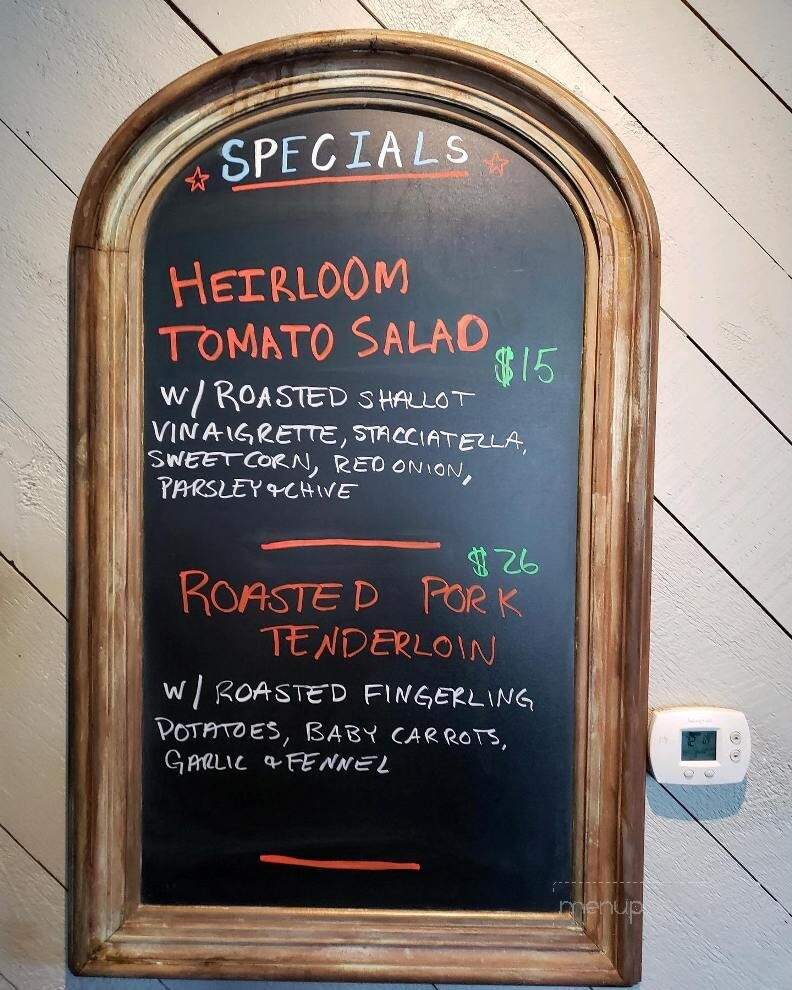 SPECIALS
HEIRLOOM
TOMATO SALAD
$15
W/ ROASTED SHALLOT
VINAIGRETTE, STACCIATELLA,
SWEET CORN, RED ONION,
PARSLEY & CHIVE
$26
ROASTED PORK
TENDERLOIN
W/ ROASTED FINGERLING
POTATOES, BABY CARROTS,
GARLIC & FENNEL
menup